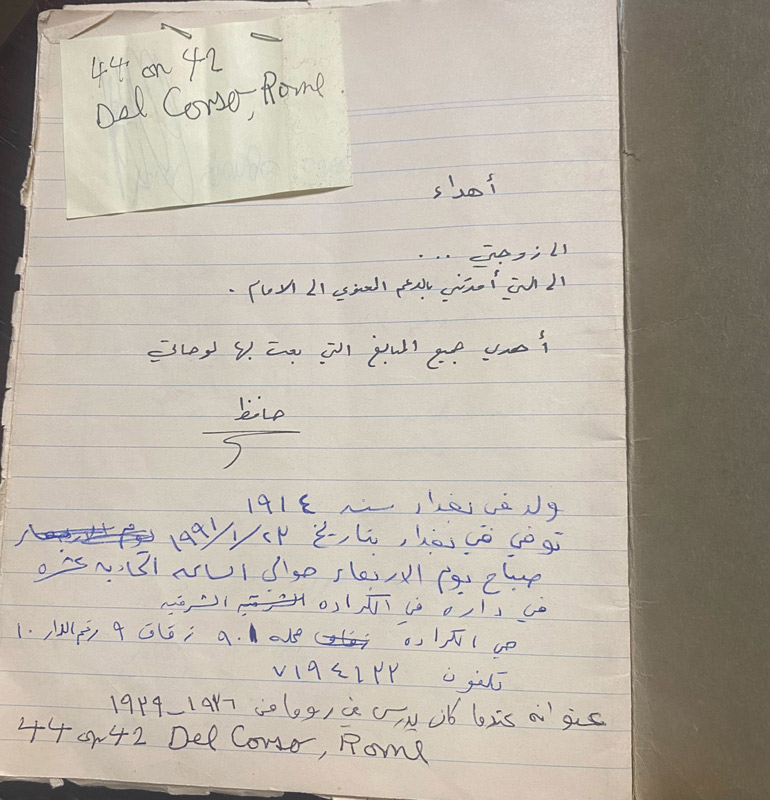 44 or 42
Del Corso, Rome
أهداء
الى زوجتي ...
الى التي أمدتني بالدعم المعنوي الى الامام .
أهدي جميع المبالغ التي بعت بها لوحاتي
حافظ
ولد في بغداد سنه ١٩١٤
توفي في بغداد بتاريخ ٢٣/١/١٩٩١ يوم الاربعاء
صباح يوم الاربعاء حوالي الساعه الحاديه عشره
في داره في الكراده الشرقيه الشرقيه
حي الكراده محله ٩٠١ زقاق ٩ رقم الدار ١٠
تلفون ٧١٩٤١٢٢
عنوانه عندما كان يدرس في روما من ١٩٣٦-١٩٣٩
44 or 42 Del Corso, Rome